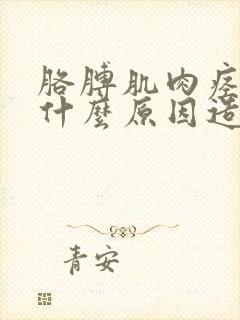 胳膊肌肉
什麼原因造
青安